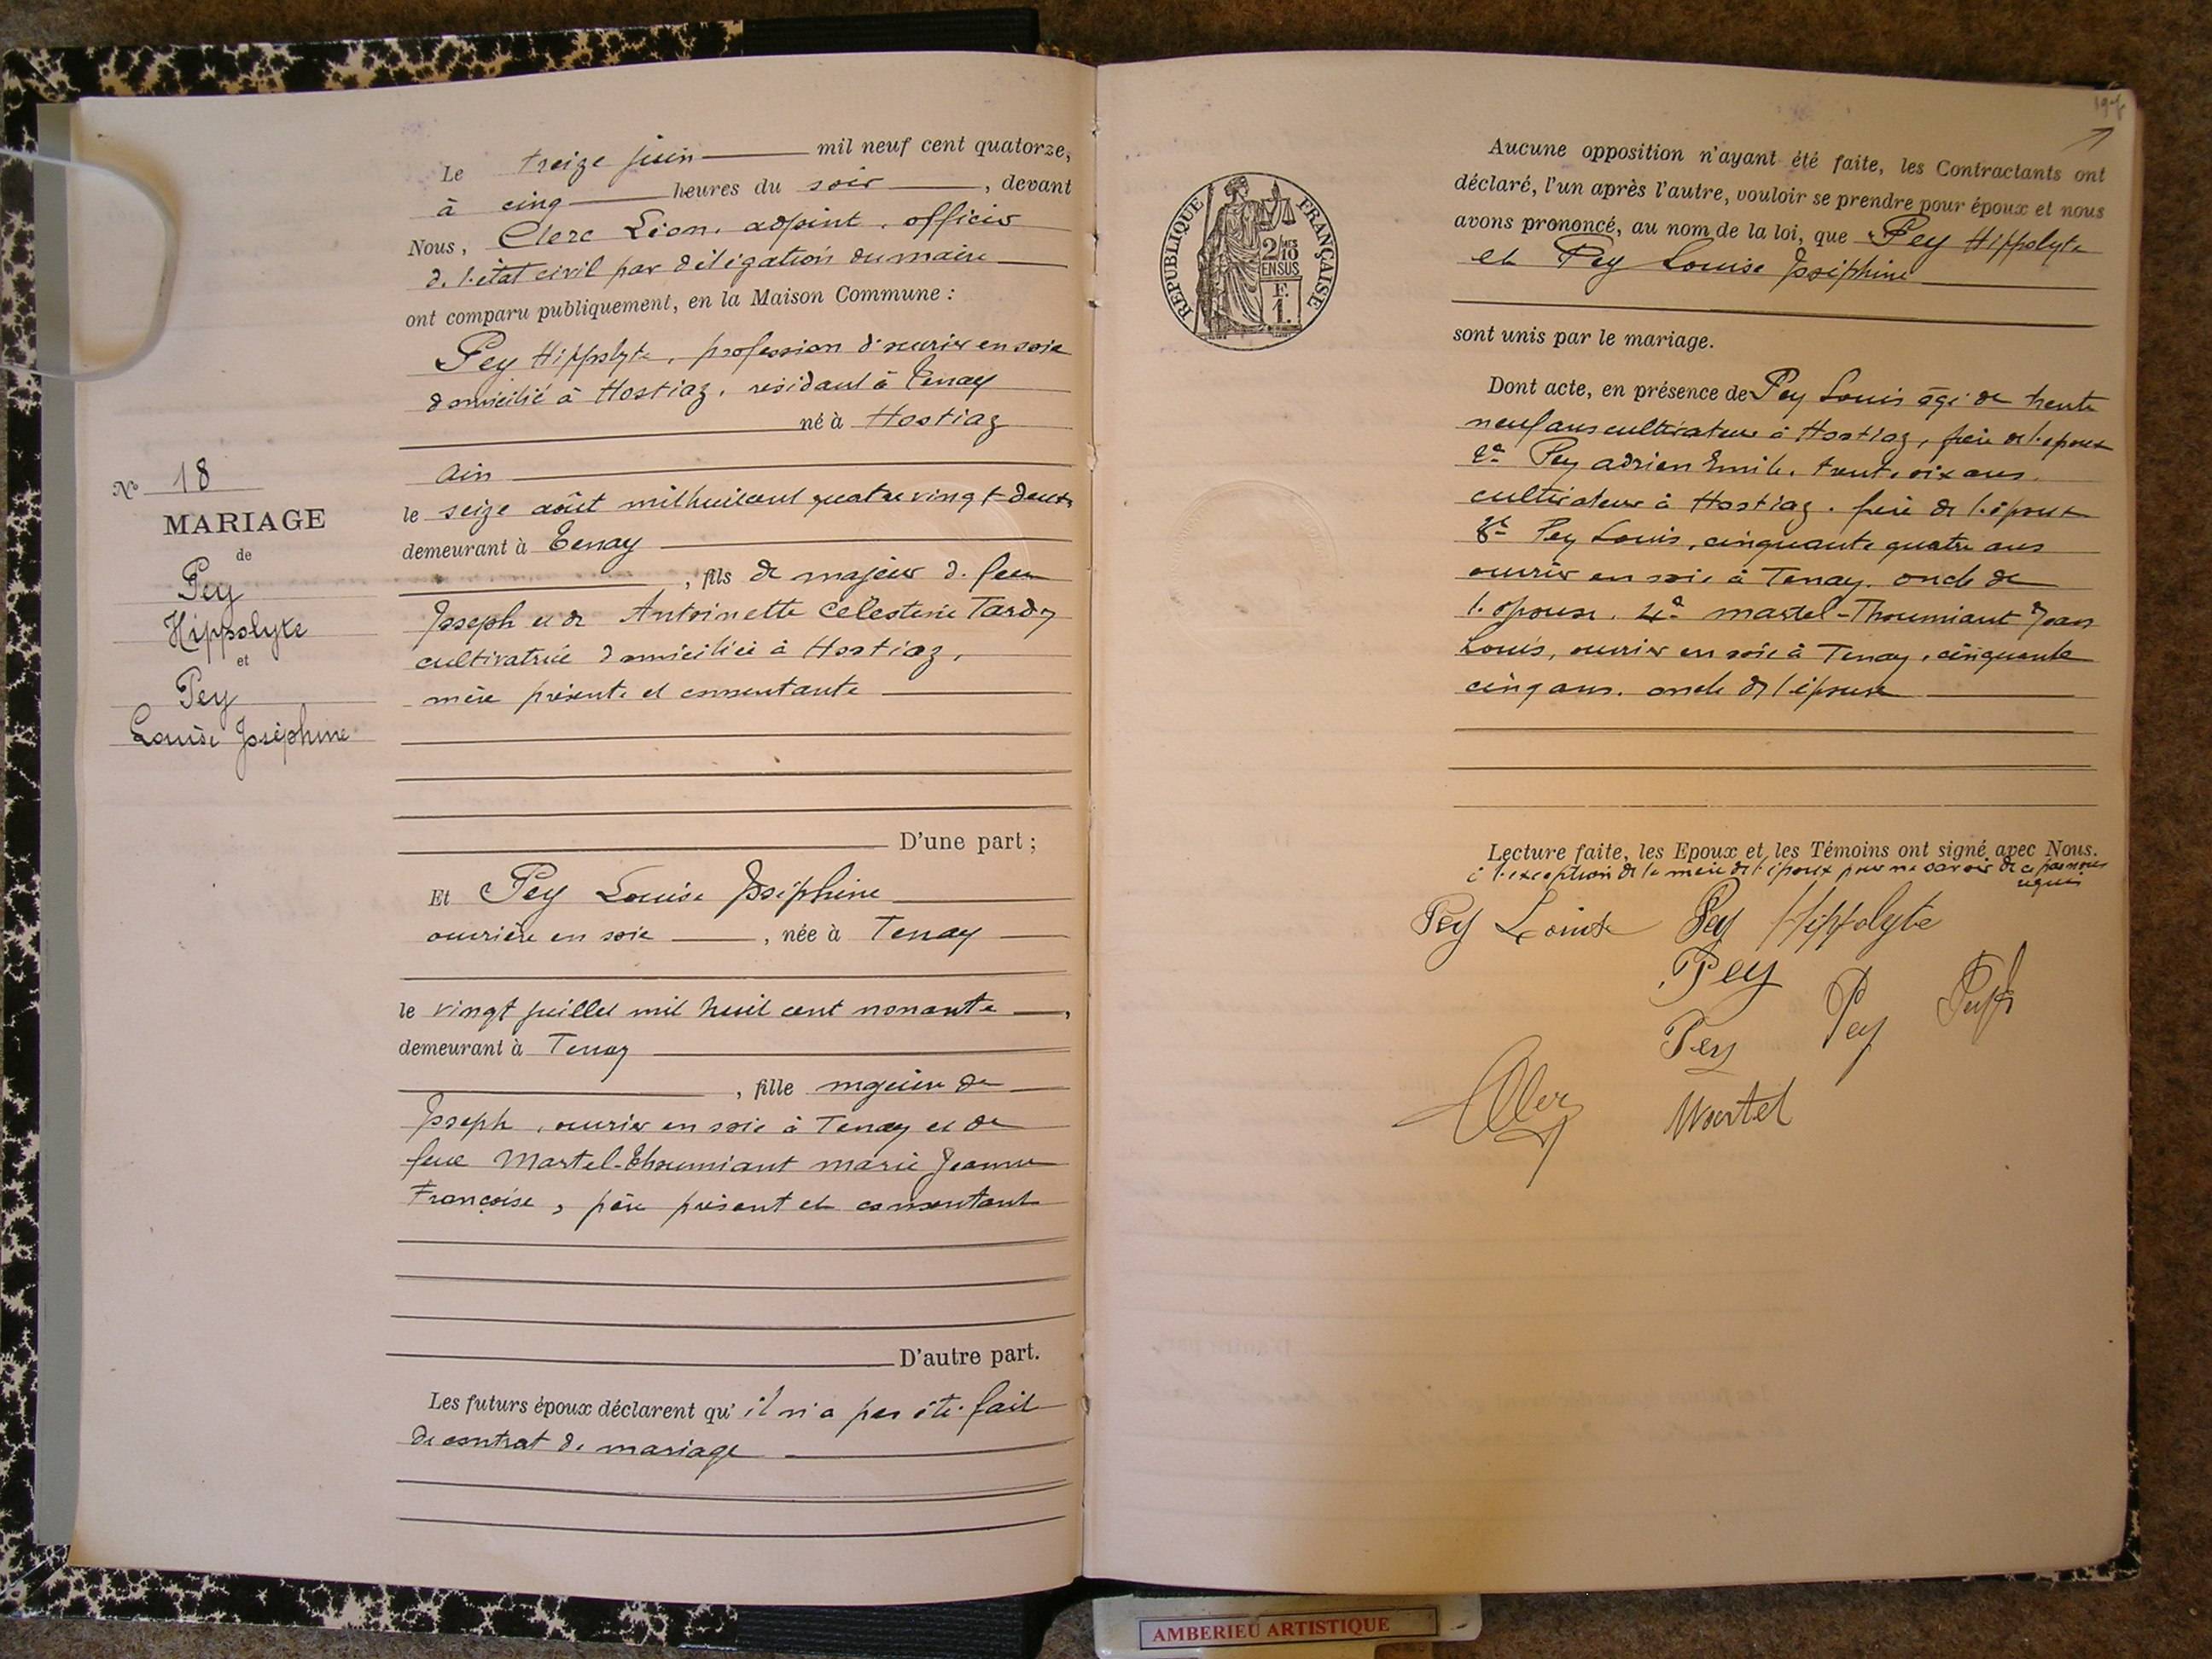 Le treize juin mil neuf cent quatorze,
à cinq heures du soir, devant
Nous, Clerc Léon, adjoint, officier
de l'état civil par délégation du maire
ont comparu publiquement, en la Maison Commune :
Pey Hippolyte, profession d'ouvrier en soie
domicilié à Hostiaz, résidant à Tenay
né à Hostiaz
Ain
le seize août mil huit cent quatre vingt deux
demeurant à Tenay
, fils de majeur de feu
Joseph et de Antoinette Célestine Tardy
cultivatrice domiciliée à Hostiaz,
mère présente et consentante
D'une part ;
Et Pey Louise Joséphine
ouvrière en soie, née à Tenay
le vingt juillet mil huit cent nonante,
demeurant à Tenay
, fille majeure de
Joseph, ouvrier en soie à Tenay et de
feue Martel-Thoumiant marie Jeanne
Françoise, père présent et consentant
D'autre part.
Les futurs époux déclarent qu'il n'a pas été fait
de contrat de mariage
No 18
MARIAGE
de
Pey
Hippolyte
et
Pey
Louise Joséphine
RÉPUBLIQUE FRANÇAISE
2/10 MES
EN SUS
F.
1.
Aucune opposition n'ayant été faite, les Contractants ont
déclaré, l'un après l'autre, vouloir se prendre pour époux et nous
avons prononcé, au nom de la loi, que Pey Hippolyte
et Pey Louise Joséphine
sont unis par le mariage.
Dont acte, en présence de Pey Louis âgé de trente
neuf ans cultivateur à Hostiaz, frère de l'époux
2° Pey adrien Emile, trente six ans
cultivateur à Hostiaz, frère de l'époux
3° Pey Louis, cinquante quatre ans
ouvrier en soie à Tenay, oncle de
l'épouse. 4° martel-Thoumiant Jean
Louis, ouvrier en soie à Tenay, cinquante
cinq ans, oncle de l'épouse
Lecture faite, les Epoux et les Témoins ont signé avec Nous.
à l'exception de la mère de l'époux pour ne savoir de ce par nous
requis
Pey Louise Pey Hippolyte
Pey
Pey Pey
Clerc Martel
AMBERIEU ARTISTIQUE